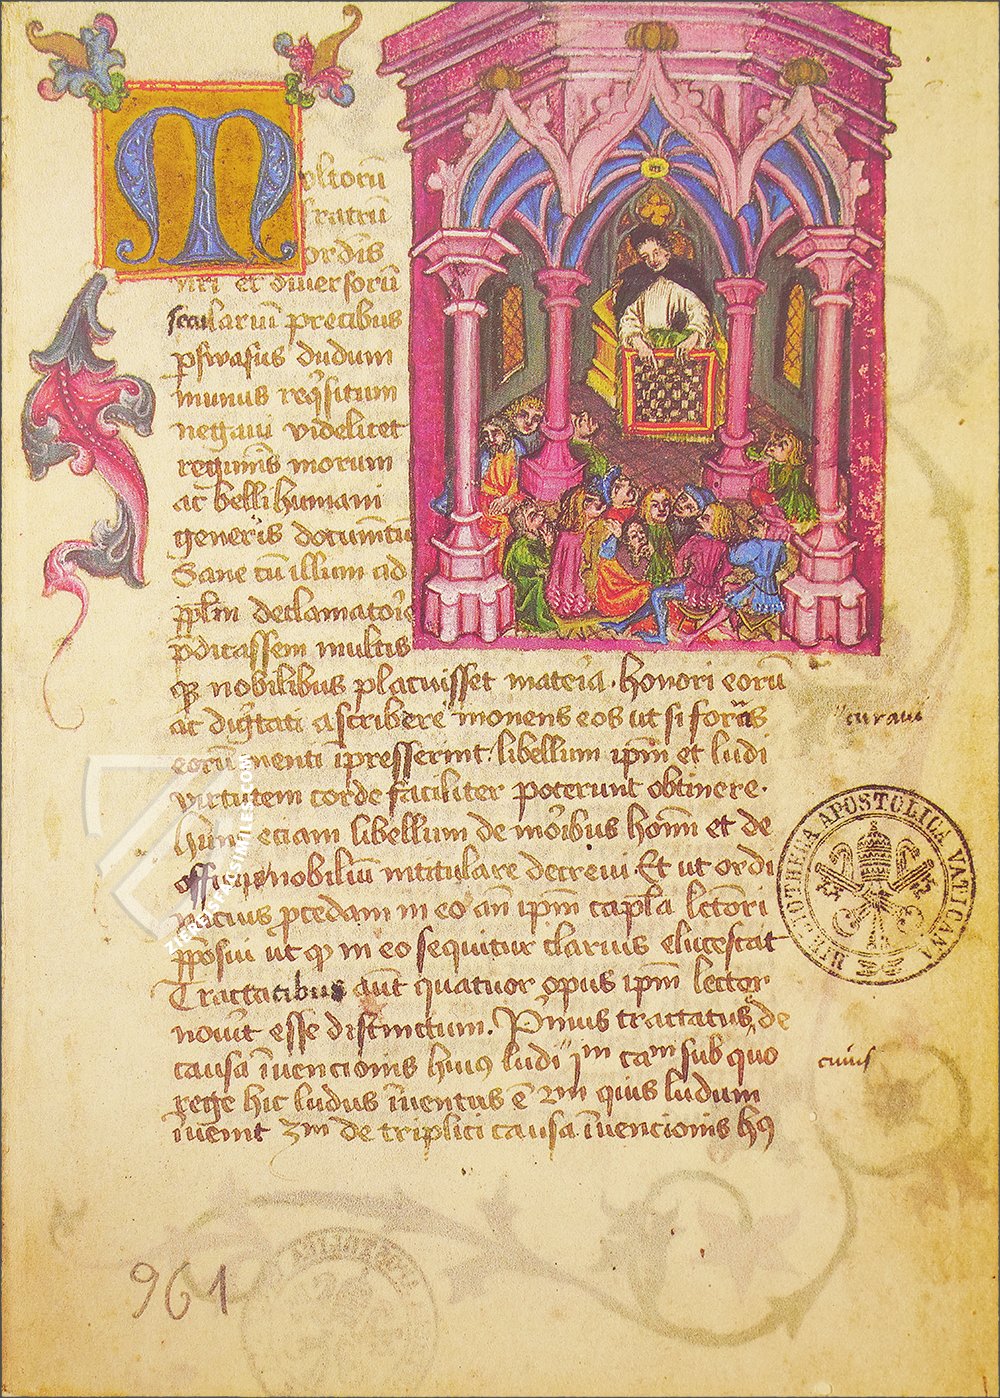 Multorũ
fratrũ
ordis
nri et diversorũ
secularium precibus
pswasus dudum
munus reqsitum
negaui videlicet
regimĩs morum
ac belli humani
generis documẽtũ
Sane cũ illum ad
pplm declamatorie
pdicassem multis
qz nobilibus placuisset materia. honori eorũ
ac digtati ascribere monens eos ut si formas
curaui
eorũ menti ĩpresserint. libellum ipm et ludi
virtutem corde faciliter poterunt obtinere.
Hunc eciam libellum de moribus homĩ et de
officijs nobiliũ intitulare decreui. Et ut ordi
nacius pcedam in eo añ ipm capla lctori
pposui ut qd in eo sequitur clarius elucescat
Tractatibus aũt quatuor opus ipm lector
nouit esse distinctum. Pimus tractatus de
causa ĩuencionis huius ludi 1m cam sub quo
cuius
rege hic ludus ĩuentus ẽ 2m quis ludum
ĩuenit 3m de triplici causa ĩuencionis h9
BIBLIOTHECA APOSTOLICA VATICANA
961
ZIEREISFACSIMILES.COM